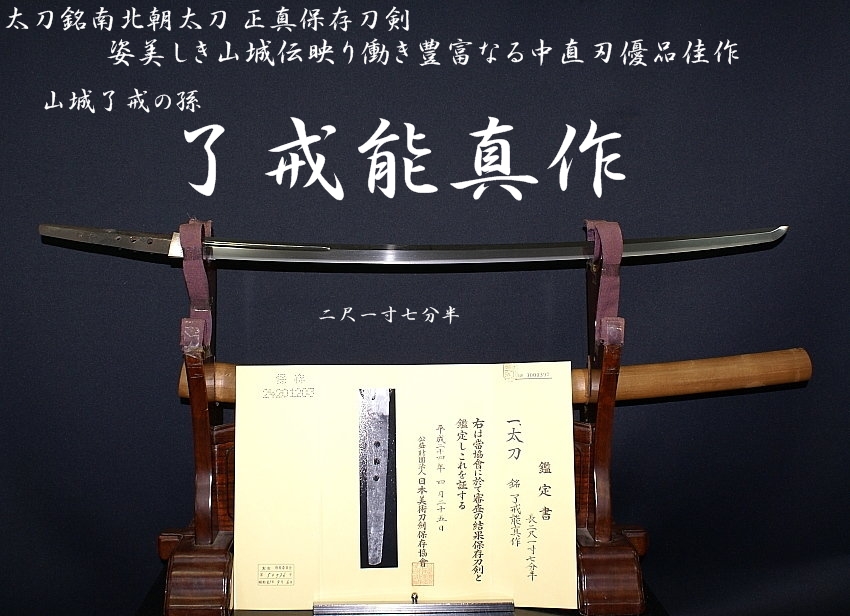 太刀銘南北朝太刀 正真保存刀剣
姿美しき山城伝映り働き豊富なる中直刃優品佳作
山城了戒の孫
了戒能真作
二尺一寸七分半
保存
鑑定書
一、太刀 銘 了戒能真作
長二尺一寸七分半
右は當協會に於て審査の結果保存刀剣と
鑑定しこれを証する
平成二十四年 四月二十五日
公益財団法人日本美術刀剣保存協會